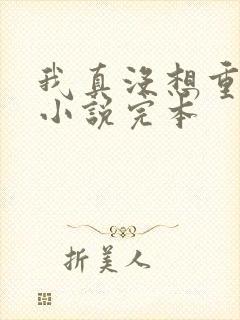 我真没想重
小说完本
折美人